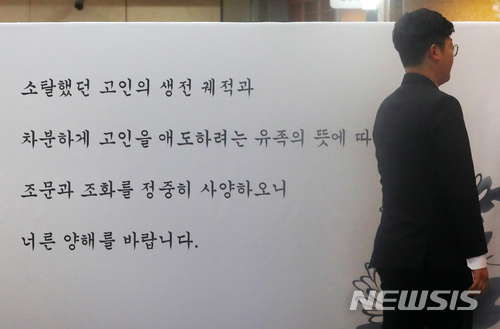 소탈했던 고인의 생전 궤적과
차분하게 고인을 애도하려는 유족의 뜻에 따
조문과 조화를 정중히 사양하오니
너른 양해를 바랍니다.
NEWSIS